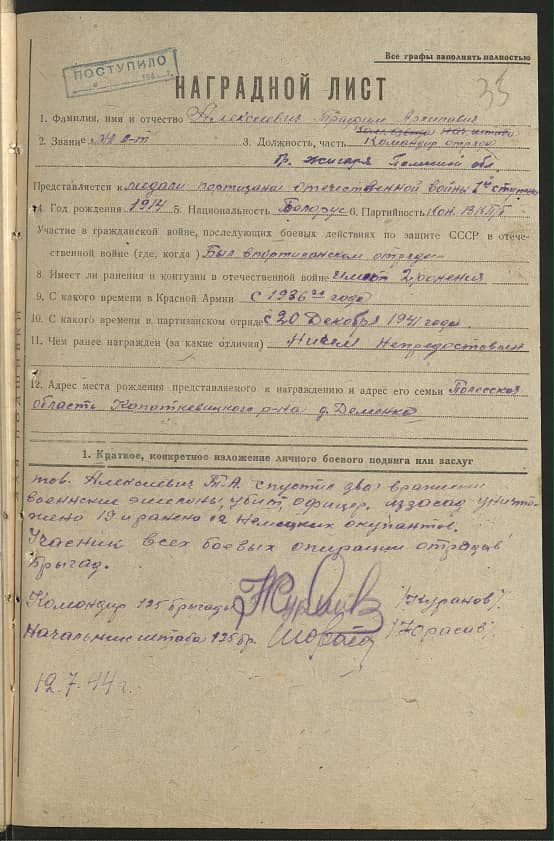 Все графы заполнять полностью
ПОСТУПИЛО
НАГРАДНОЙ ЛИСТ
33
1. Фамилия, имя и отчество Алексиевич Трафим Архипович
2. Звание 3. Должность, часть Командир отряда
Представляется к медали партизана отечественной войны 1й
4. Год рождения 1914 5. Национальность Белорус 6. Партийность ВКПб
Участие в гражданской войне, последующих боевых действиях по защите СССР в отече-
ственной войне (где, когда) Был в партизанском отряде
8. Имеет ли ранения и контузии в отечественной войне имеет 2 ранения
9. С какого времени в Красной Армии с 1936 года
10. С какого времени в партизанском отряде с 20 Декабря 1941 года
11. Чем ранее награжден (за какие отличия) Ничем
12. Адрес места рождения представляемого к награждению и адрес его семьи Полесская
область Копаткевицкого р-на д.
1. Краткое, конкретное изложение личного боевого подвига или заслуг
тов. Алексиевич Т.А. спустил два вражеских
эшелоны, убит офицер. из засад уничто-
жено 19 и ранено 12 Немецких окупантов.
Участник всех боевых операции отрядов
бригад.
Командир 125 бригады /Куранов/
Начальник штаба 125 бр. /Юрасов/
12.7.44 г.
ДЛЯ ПОДШИВКИ